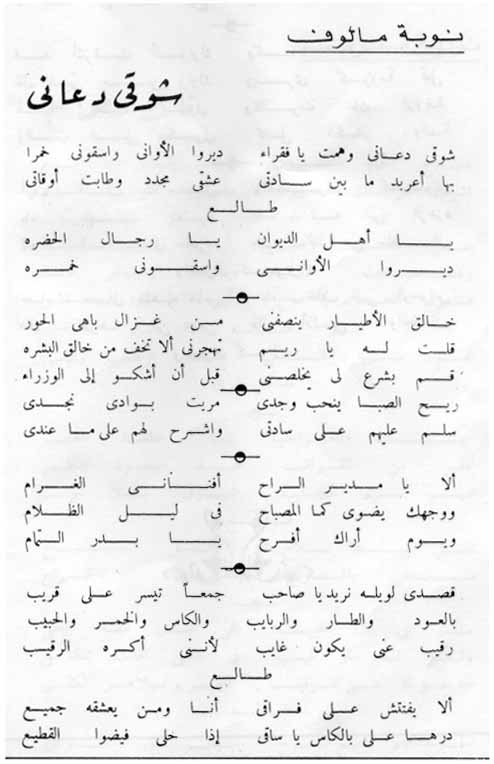 نوبة مالوف
شوقى دعانى
شوقى دعانى وهمت يا فقراء ديروا الأوانى واسقونى خمرا
بها أعربد ما بين سادتى عشقى مجدد وطابت أوقاتى
طالع
يا أهل الديوان يا رجال الحضره
ديروا الأوانى واسقونى خمره
خالق الأطيار ينصفنى من غزال باهى الحور
قلت له يا ريم تهجرنى ألا تخف من خالق البشره
قم بشرع لى يخلصنى قبل أن أشكو إلى الوزراء
ريح الصبا ينحب وجدى مربت بوادى نجدى
سلم عليهم على سادتى واشرح لهم على ما عندى
ألا يا مدير الراح أفنانى الغرام
ووجهك يضوى كما المصباح فى ليل الظلام
ويوم أراك أفرح يا بدر التمام
قصدى لويله نريد يا صاحب جمعاً تيسر على قريب
بالعود والطار والربايب والكاس والخمر والحبيب
رقيب عنى يكون غايب لأننى أكره الرقيب
طالع
ألا يفتتش على فراقى أنا ومن يعشقه جميع
درها على بالكاس يا ساقى إذا خلى فيضوا القطيع